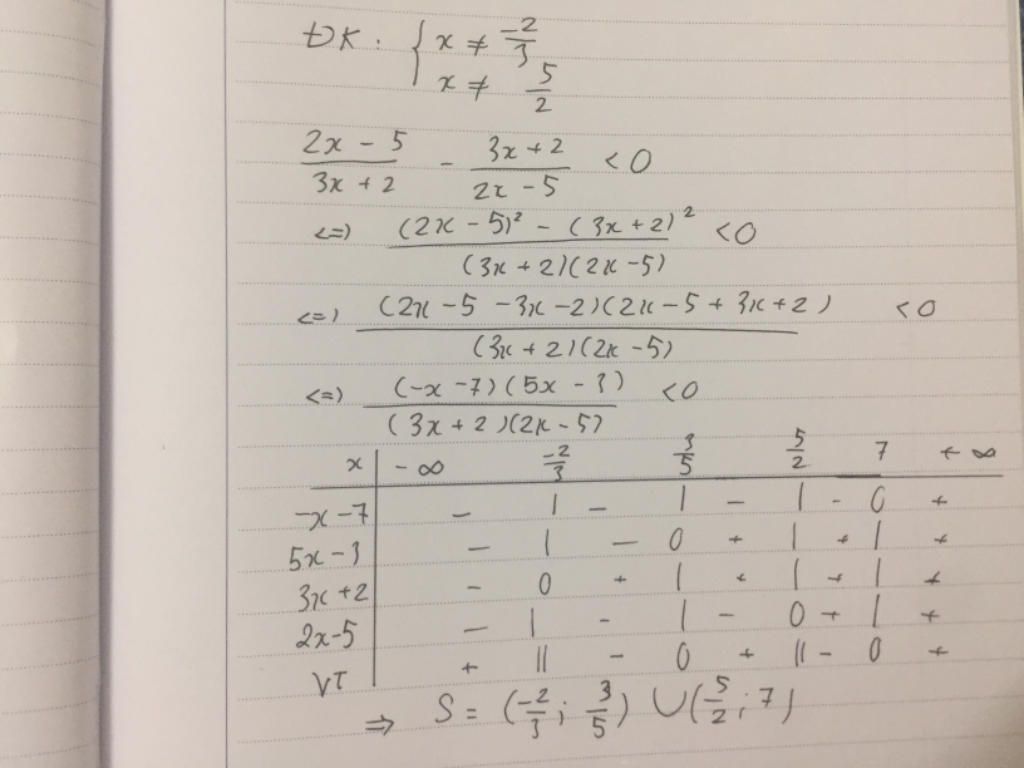 ĐK: { x ≠ -2/3
x ≠ 5/2
(2x - 5)/(3x + 2) - (3x + 2)/(2x - 5) < 0
<=> ((2x - 5)² - (3x + 2)²)/((3x + 2)(2x - 5)) < 0
<=> ((2x - 5 - 3x - 2)(2x - 5 + 3x + 2))/((3x + 2)(2x - 5)) < 0
<=> ((-x - 7)(5x - 3))/((3x + 2)(2x - 5)) < 0
x | -∞ -2/3 3/5 5/2 7 +∞
-x - 7 | - | - | - | - 0 +
5x - 3 | - | - 0 + | + | +
3x + 2 | - 0 + | + | + | +
2x - 5 | - | - | - 0 + | +
VT | + || - 0 + || - 0 +
=> S = (-2/3; 3/5) ∪ (5/2; 7)